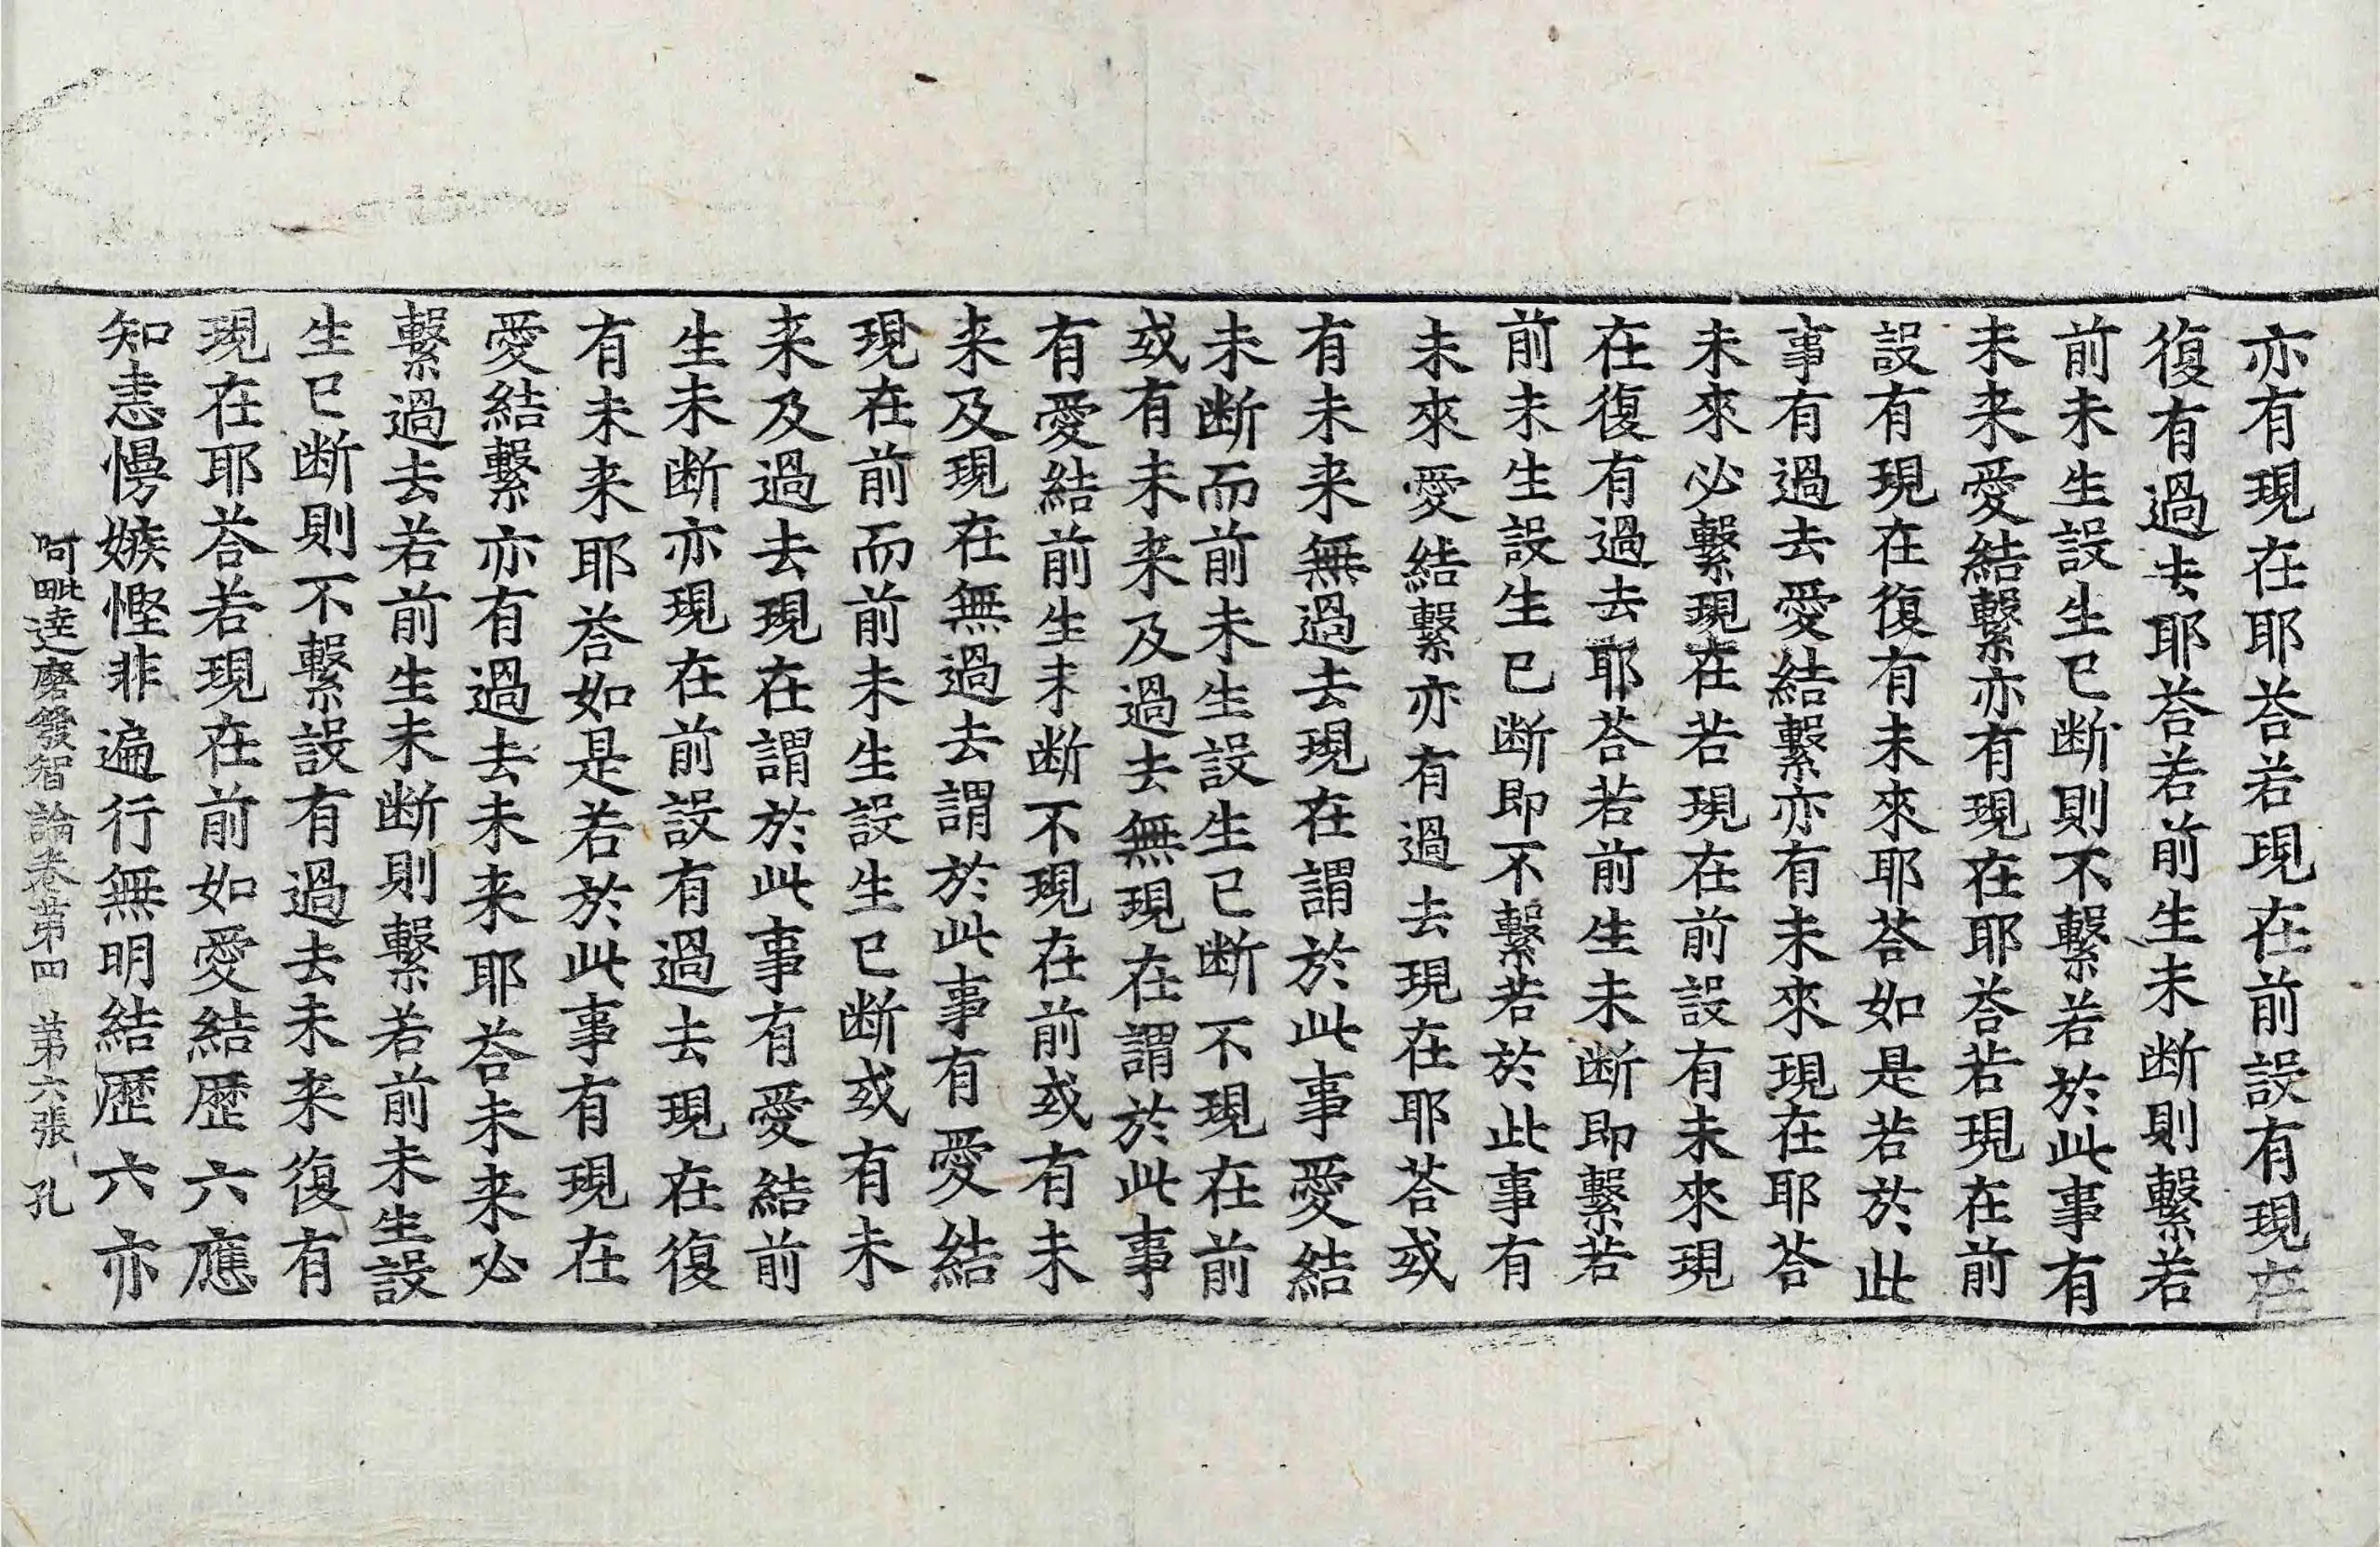 亦有現在耶荅若現在前設有現在
復有過去耶荅若前生未断則繫若
前未生設生已断則不繫若於此事有
未来愛結繫亦有現在耶荅若現在前
設有現在復有未來耶荅如是若於此
事有過去愛結繫亦有未來現在耶荅
未來必繫現在若現在前設有未來現
在復有過去耶荅若前生未断即繫若
前未生設生已断即不繫若於此事有
未來愛結繫亦有過去現在耶荅或
有未来無過去現在謂於此事愛結
未断而前未生設生已断不現在前
或有未来及過去無現在謂於此事
有愛結前生未断不現在前或有未
来及現在無過去謂於此事有愛結
現在前而前未生設生已断或有未
来及過去現在謂於此事有愛結前
生未断亦現在前設有過去現在復
有未来耶荅如是若於此事有現在
愛結繫亦有過去未来耶荅未来必
繫過去若前生未断則繫若前未生設
生已断則不繫設有過去未来復有
現在耶荅若現在前如愛結歴六應
知恚慢嫉慳非遍行無明結歴六亦
阿毗達磨發智論卷第四 第六張 孔